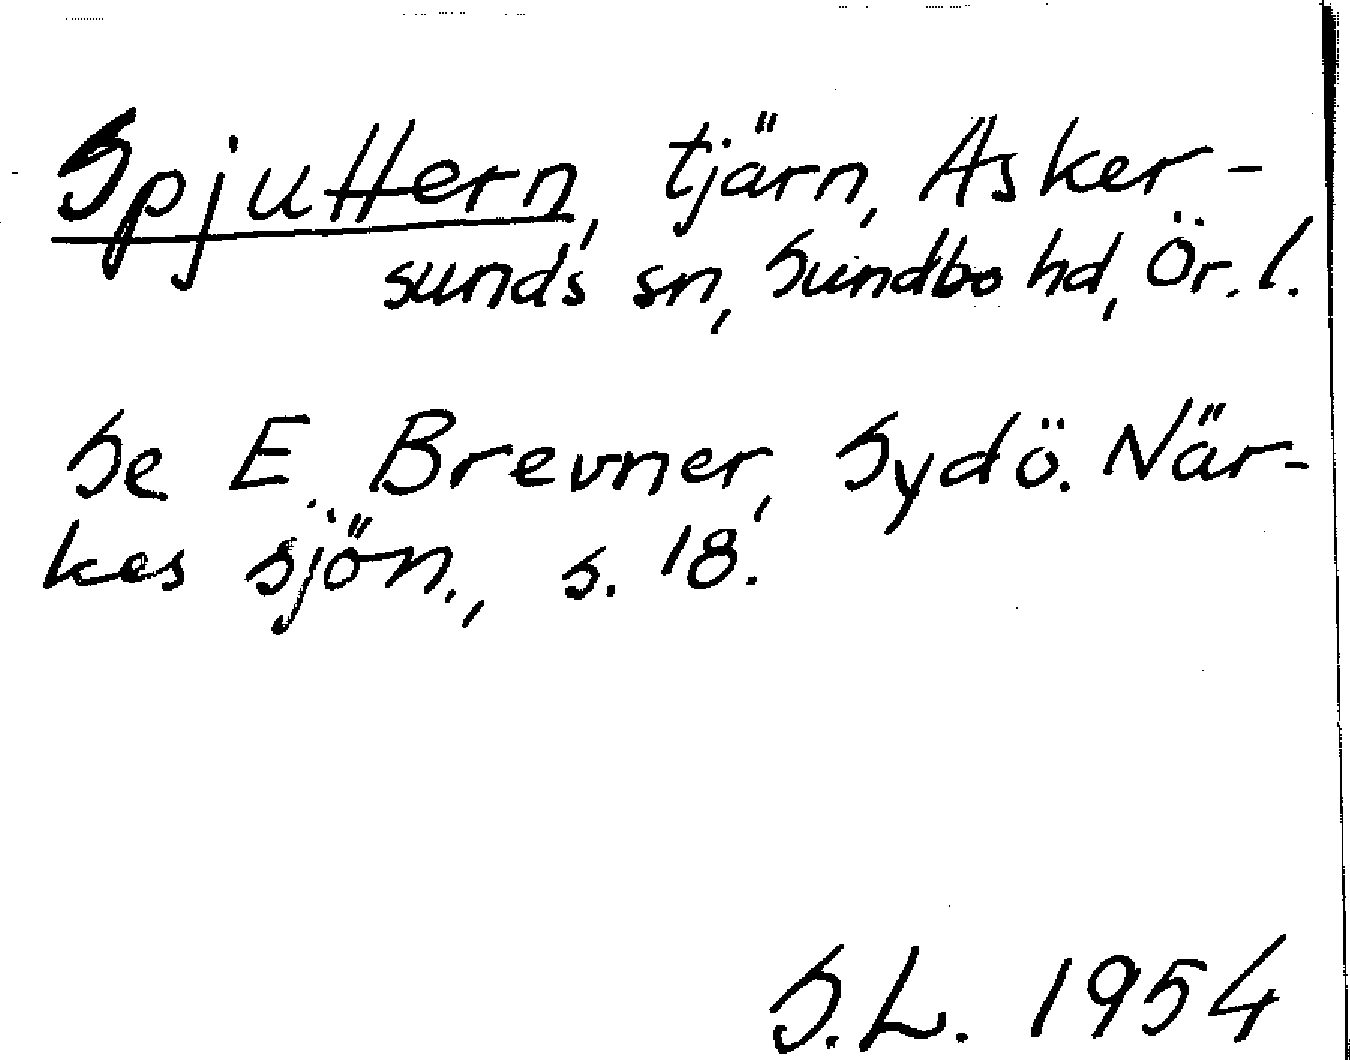 Spjuttern, tjärn, Asker-
sunds sn, Sundbo hd, Ör. l.
Se E. Brevner, Sydö. När-
kes sjön., s. 18.
S.L. 1954